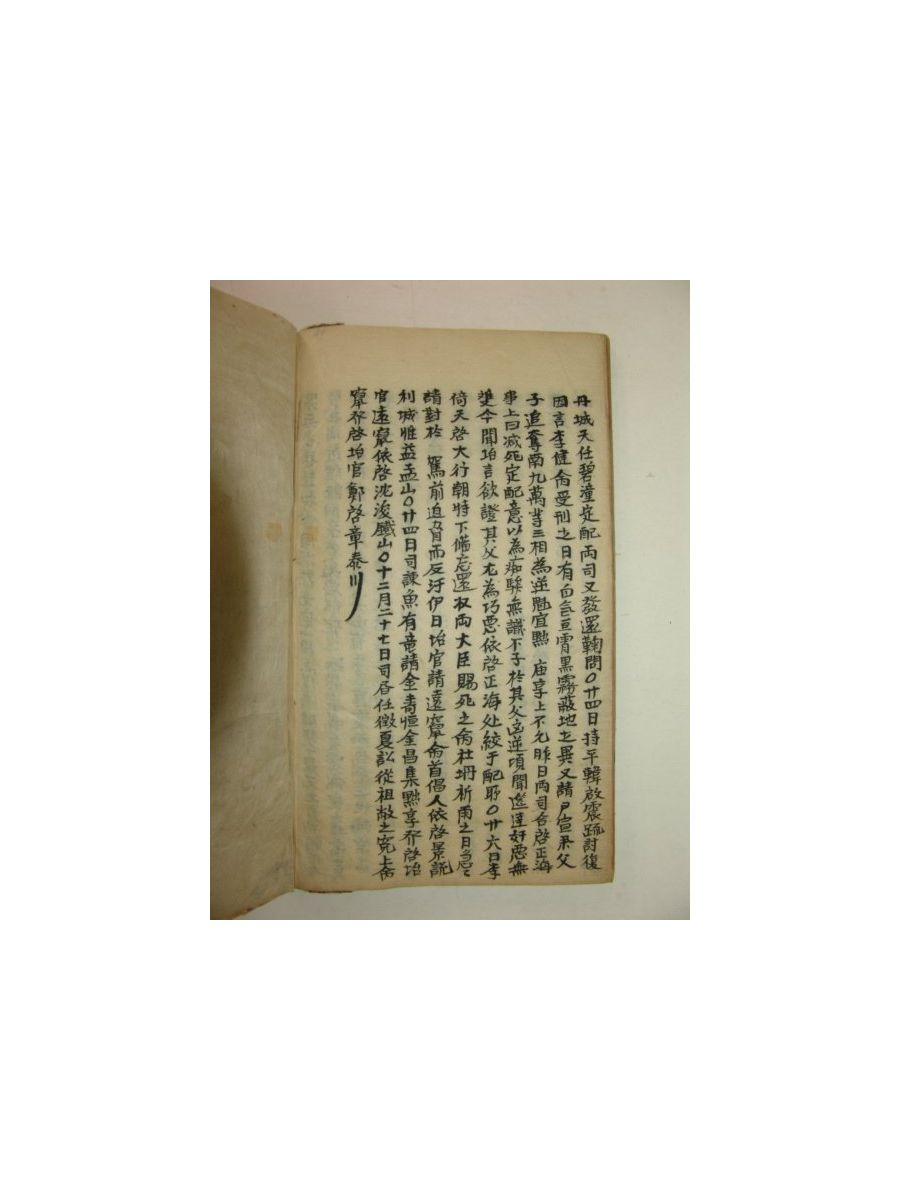 丹城天任碧潼定配兩司又發還鞫問〇廿四日持平韓啟震疏討復
因言李健命受刑之日有白气亘霄黑霧蔽地之異又請尹宣擧父
子追奪南九萬等三相為逆魁宜黜 庙享上不允昨日两司合啓正海
事上曰减死定配意以為痴騃無識不子於其父凶逆頃聞筵達奸悪無
雙今聞坮言欲證其父尤為巧悪依啓正海处絞于配所〇廿六日李
倚天啓大行朝特下備忘還收两大臣賜死之命社坍祈雨之日急〻
請對於 駕前迫脅而反汗伊日坮官請遠竄命首倡人依啓景説
利城雅益孟山〇廿四日司諫魚有竜請金壽恒金昌集黜享發啓坮
官遠竄依啓沈浚鐵山〇十二月二十七日司啓任徴夏訟從祖故之寃上命
竄發啓坮官鄭啓章泰川